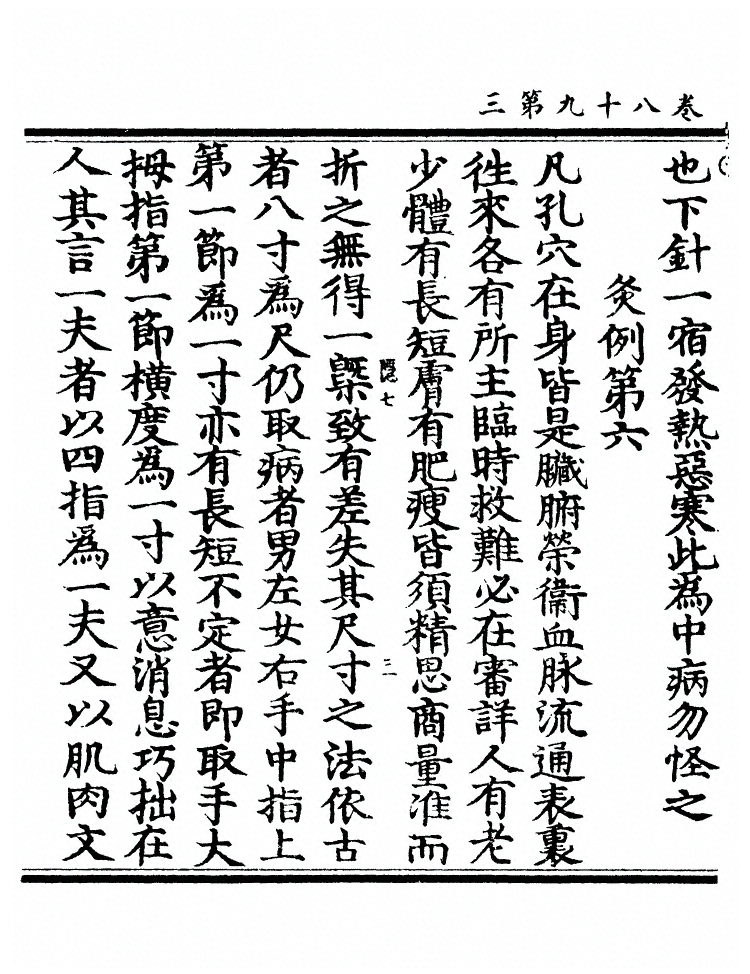 三第九十八卷
也下針一宿發熱惡寒此為中病勿怪之
灸例第六
凡孔穴在身皆是臟腑榮衞血脉流通表裏
徃來各有所主臨時救難必在審詳人有老
少體有長短膚有肥瘦皆須精思商量准而
隠七
三
折之無得一槩致有差失其尺寸之法依古
者八寸爲尺仍取病者男左女右手中指上
第一節爲一寸亦有長短不定者即取手大
拇指第一節橫度為一寸以意消息巧拙在
人其言一夫者以四指爲一夫又以肌肉文